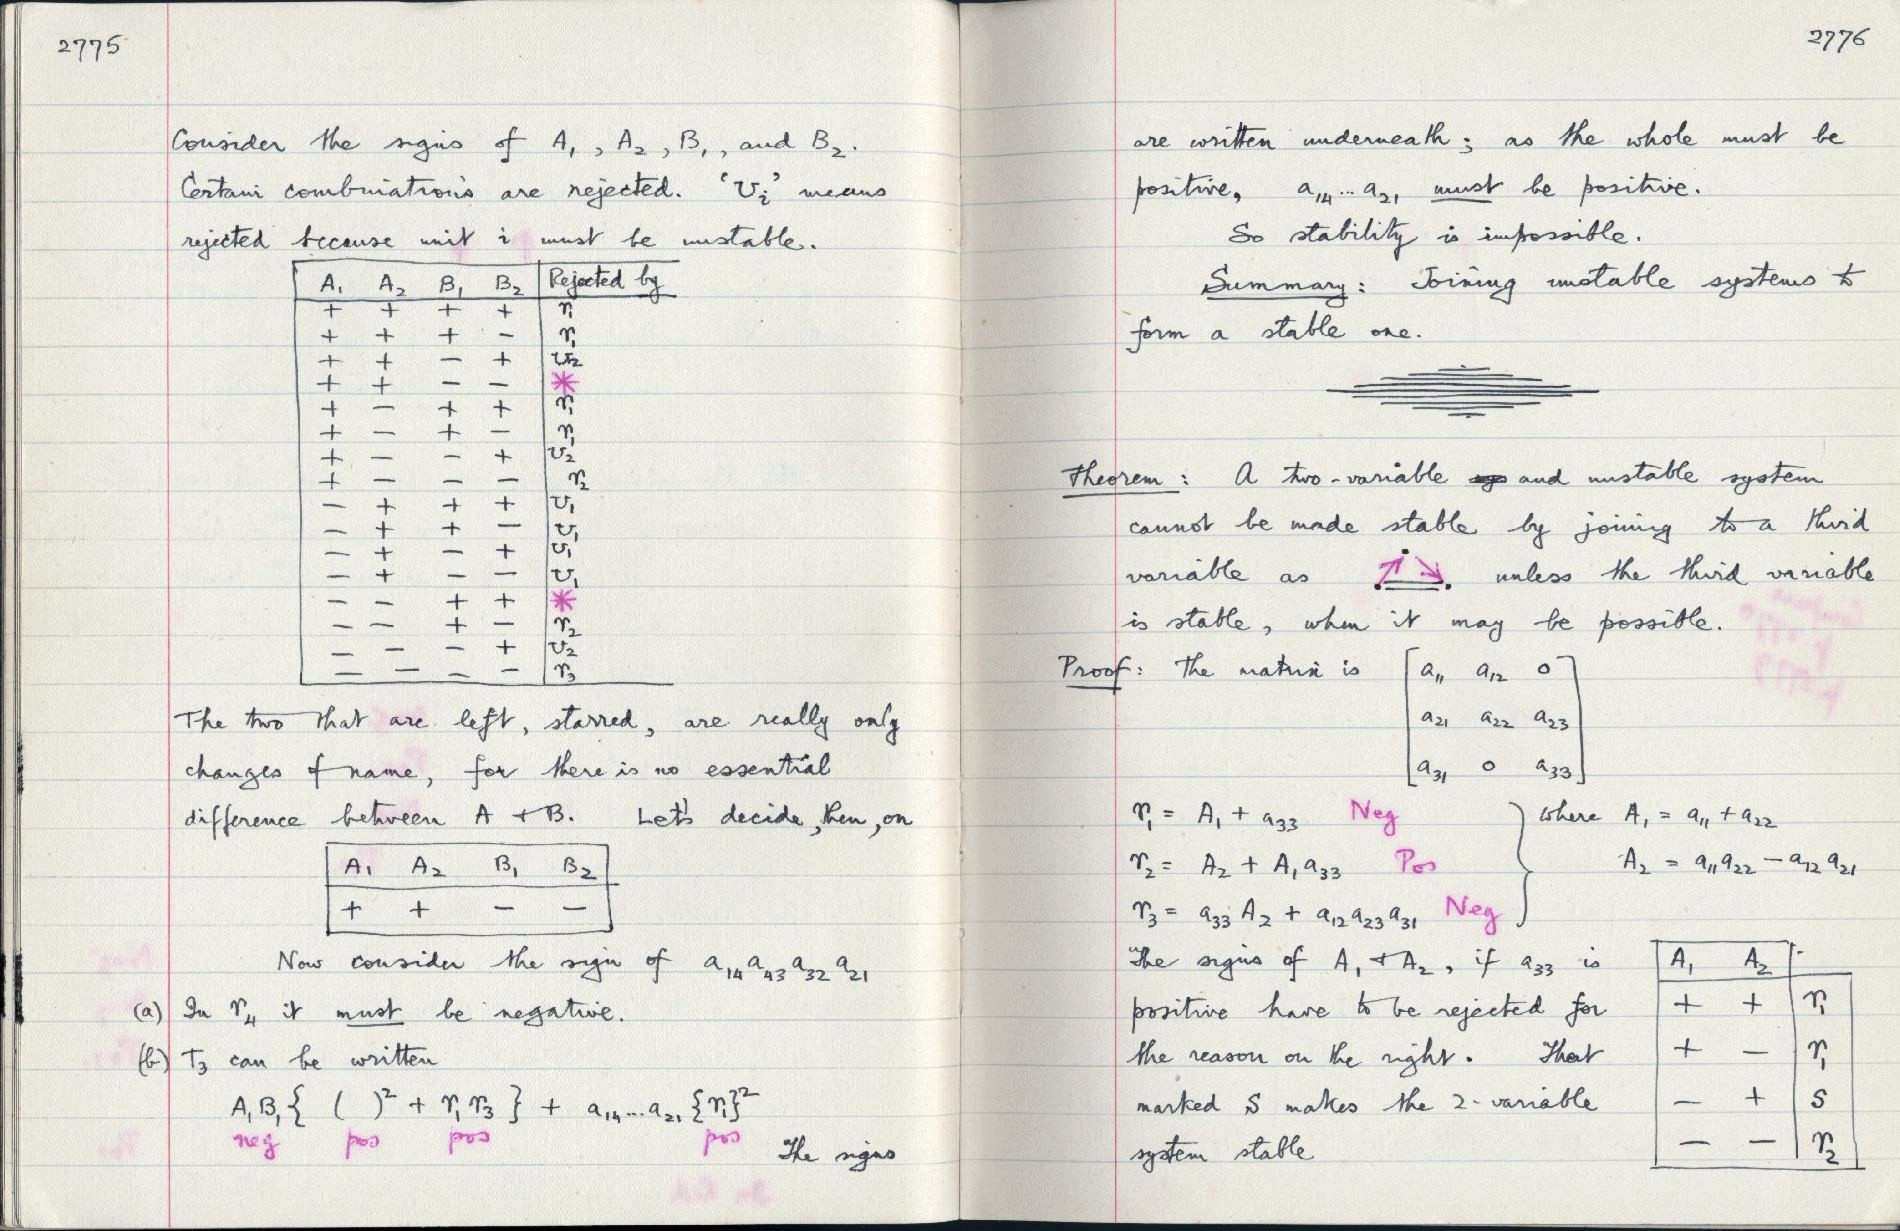 2775
Consider the signs of A₁, A₂, B₁, and B₂.
Certain combinations are rejected. 'υᵢ' means
rejected because unit i must be unstable.
A₁ A₂ B₁ B₂ Rejected by
+ + + + r₁
+ + + − r₁
+ + − + υ₂
+ + − − *
+ − + +
+ − + − r₁
+ − − + υ₂
+ − − − r₂
− + + + υ₁
− + + − υ₁
− + − + υ₁
− + − − υ₁
− − + + *
− − + − r₂
− − − + υ₂
− − − − r₃
The two that are left, starred, are really only
changes of name, for there is no essential
difference between A + B. Let's decide, then, on
A₁ A₂ B₁ B₂
+ + − −
Now consider the sign of a₁₄a₄₃a₃₂a₂₁
(a) In r₄ it must be negative.
(b) T₃ can be written
A₁B₁{ ( )² + r₁r₃ } + a₁₄...a₂₁{r₁}²
neg pos pos pos
The signs
2776
are written underneath; as the whole must be
positive, a₁₄...a₂₁ must be positive.
So stability is impossible.
Summary: Joining unstable systems to
form a stable one.
Theorem: A two-variable and unstable system
cannot be made stable by joining to a third
variable as unless the third variable
is stable, when it may be possible.
Proof: The matrix is [a₁₁ a₁₂ 0
a₂₁ a₂₂ a₂₃
a₃₁ 0 a₃₃]
r₁ = A₁ + a₃₃ Neg } where A₁ = a₁₁ + a₂₂
r₂ = A₂ + A₁a₃₃ Pos A₂ = a₁₁a₂₂ − a₁₂a₂₁
r₃ = a₃₃A₂ + a₁₂a₂₃a₃₁ Neg
The signs of A₁ + A₂, if a₃₃ is
positive have to be rejected for
the reason on the right. That
marked S makes the 2-variable
system stable
A₁ A₂
+ + r₁
+ − r₁
− + S
− − r₂